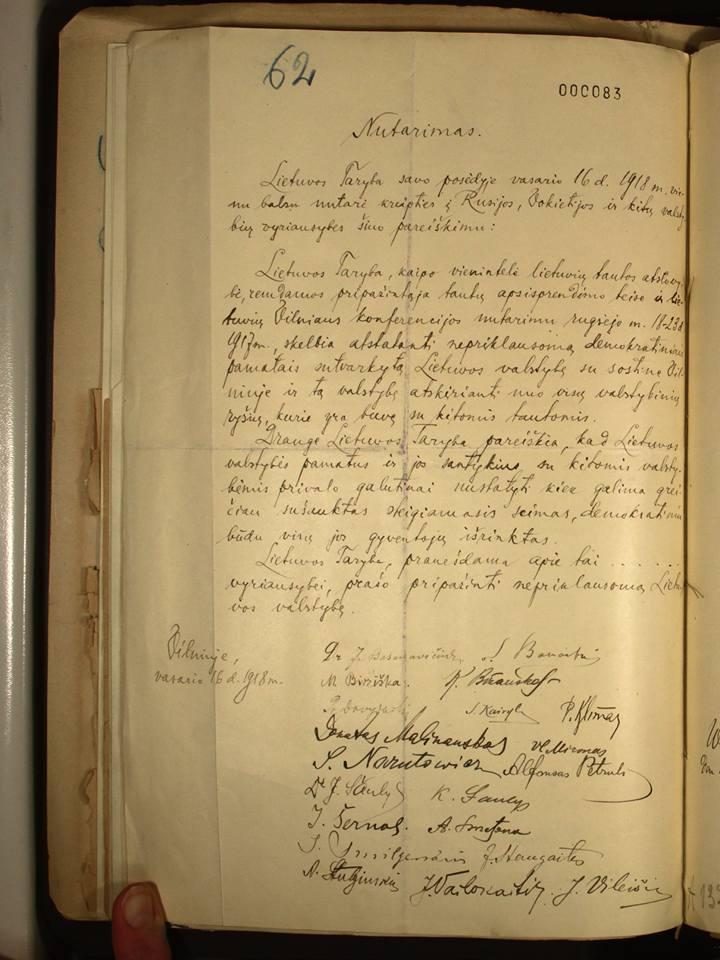 62
000083
Nutarimas.
Lietuvos Taryba savo posėdyje vasario 16 d. 1918 m. vie-
nu balsu nutarė kreipties į Rusijos, Vokietijos ir kitų valsty-
bių vyriausybes šiuo pareiškimu:
Lietuvos Taryba, kaipo vienintelė lietuvių tautos atstovy-
bė, remdamos pripažintąja tautų apsisprendimo teise ir lie-
tuvių Vilniaus konferencijos nutarimu rugsėjo m. 18-23 d.
1917 m., skelbia atstatanti nepriklausomą demokratiniais
pamatais sutvarkytą Lietuvos valstybę su sostine Vil-
niuje ir tą valstybę atskirianti nuo visų valstybinių
ryšių, kurie yra buvę su kitomis tautomis.
Drauge Lietuvos Taryba pareiškia, kad Lietuvos
valstybės pamatus ir jos santykius su kitomis valsty-
bėmis privalo galutinai nustatyti kiek galima grei-
čiau sušauktas steigiamasis seimas, demokratiniu
būdu visų jos gyventojų išrinktas.
Lietuvos Taryba, pranešdama apie tai . . . . . .
vyriausybei, prašo pripažinti nepriklausomą Lietu-
vos valstybę.
Vilniuje,
vasario 16 d. 1918 m.
Dr J. Basanavičius S. Banaitis
M. Biržiška K. Bizauskas
P. Dovydaitis S. Kairys P. Klimas
Donatas Malinauskas Vl. Mironas
S. Narutowicz Alfonsas Petrulis
Dr J. Šaulys K. Šaulys
J. Šernas A. Smetona
J. Smilgevičius J. Staugaitis
A. Stulginskis J. Vailokaitis J. Vileišis